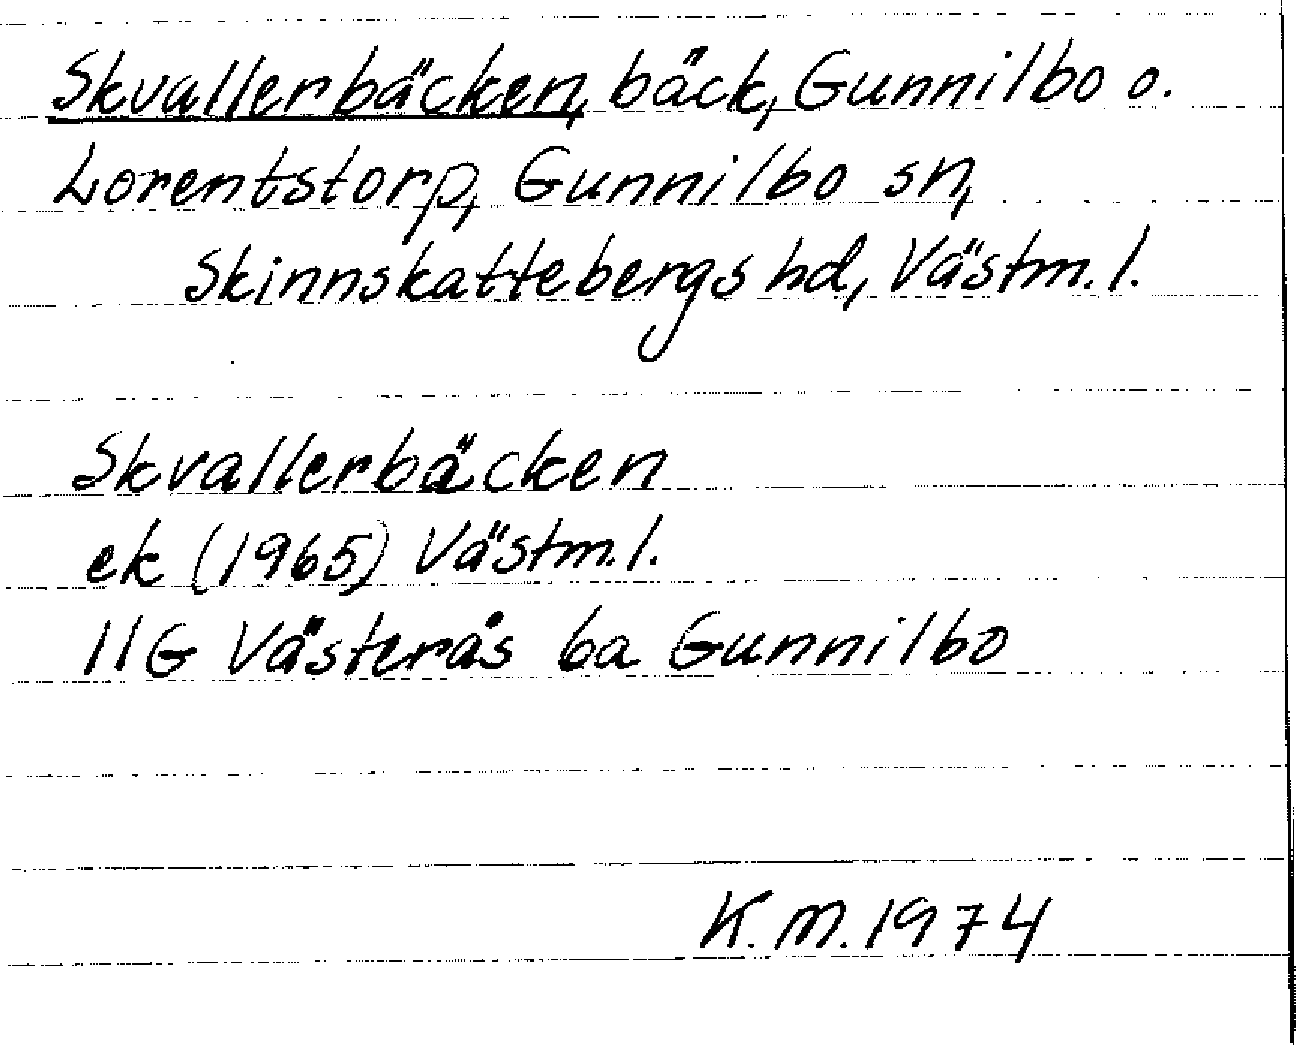 Skvallerbäcken, bäck, Gunnilbo o.
Lorentstorp, Gunnilbo sn,
Skinnskattebergs hd, Västm. l.
Skvallerbäcken
ek (1965) Västm. l.
11G Västerås 6a Gunnilbo
K.M. 1974